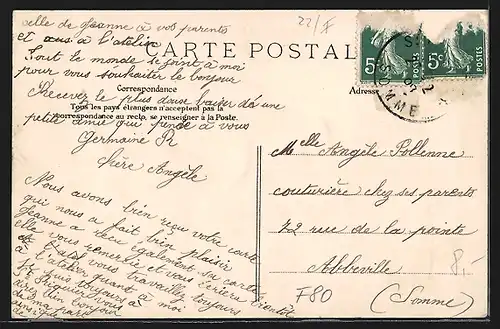 celle de Jeanne à vos parents
et à l'atelier
Tout le monde se joint à moi
pour vous souhaiter le bonjour
Recevez le plus doux baiser de une
petite amie qui pense à vous
Germaine R
22/F
CARTE POSTALE
Correspondance
Tous les pays étrangers n'acceptent pas la
correspondance au recto, se renseigner à la Poste.
Adresse
5c
POSTES
5c
POSTES
SOMME
Chère Angèle
Nous avons bien reçu votre carte
qui nous a fait bien plaisir
Jeanne a reçu également sa carte
elle vous remercie et vous écrira bientôt
vous travaillez toujours
à l'atelier quant à moi
toujours à
dire bon bonjour
Melle Angèle Pollenne
couturière chez ses parents
72 rue de la pointe
Abbeville
(Somme)
F80
8,-